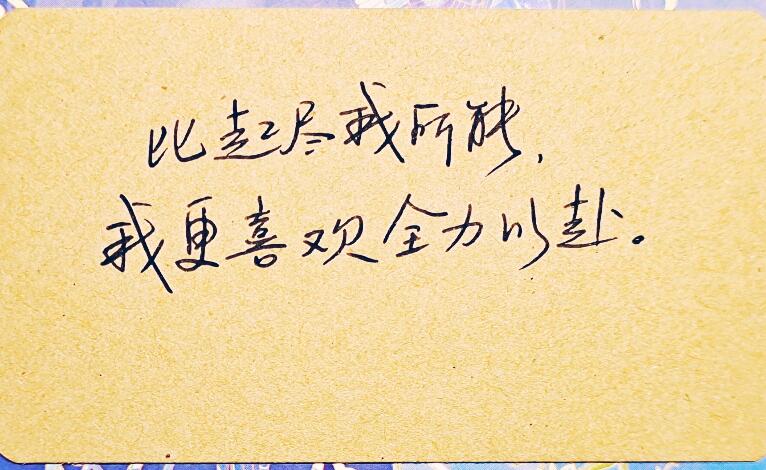 比起尽我所能,
我更喜欢全力以赴。